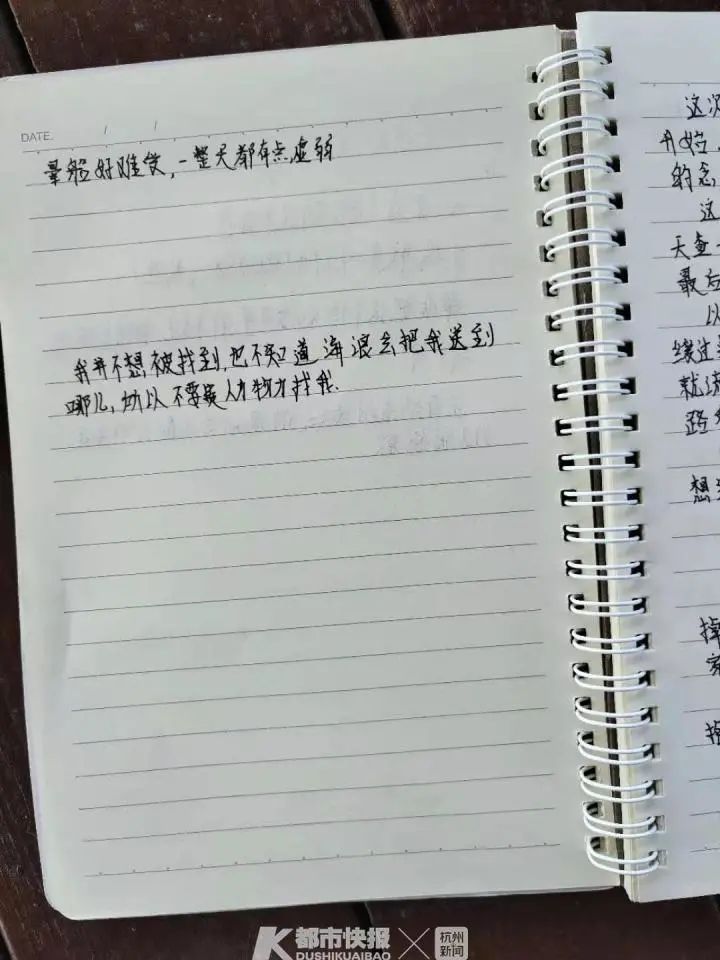 DATE. / /
晕船好难受,一整天都有点虚弱
我并不想被找到,也不知道海浪会把我送到
哪儿,所以不要费人力物力找我.
这次
开始
的念
这
天查
最后
以
缘过
就
路
想
掉
家
K都市快报 × 杭州新闻
DUSHIKUAIBAO